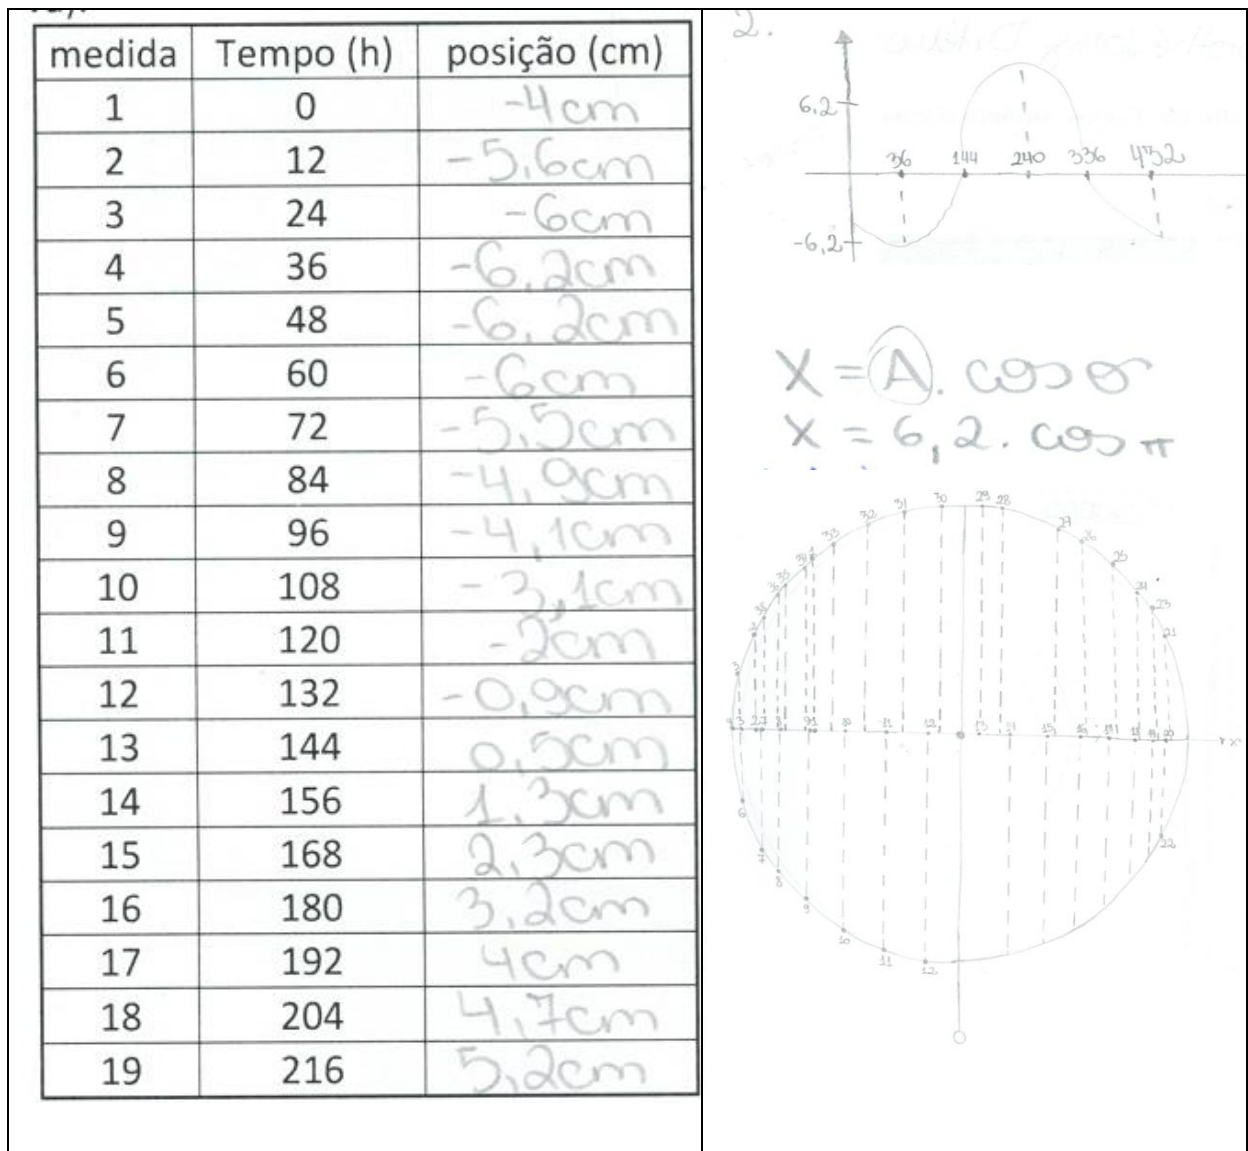 medida Tempo (h) posição (cm)
1 0 -4cm
2 12 -5,6cm
3 24 -6cm
4 36 -6,2cm
5 48 -6,2cm
6 60 -6cm
7 72 -5,5cm
8 84 -4,9cm
9 96 -4,1cm
10 108 -3,1cm
11 120 -2cm
12 132 -0,9cm
13 144 0,5cm
14 156 1,3cm
15 168 2,3cm
16 180 3,2cm
17 192 4cm
18 204 4,7cm
19 216 5,2cm
2.
6,2
36 144 240 336 432
-6,2
X = A. cos σ
X = 6,2. cos π
31 30 29 28
32 33 27 26
25
34 1
35
24
23
21
2
3
10 11 12 13 15 16
x
6
22
7
8
9
10
11
12